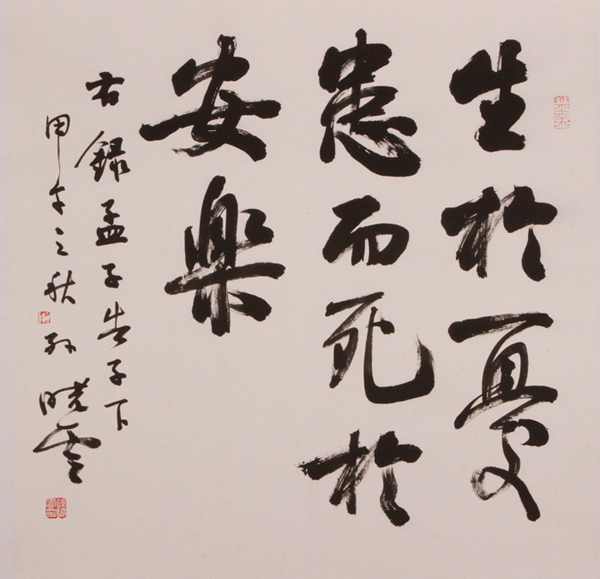 生於憂
患而死於
安樂
右錄孟子告子下
甲午之秋孙曉雲